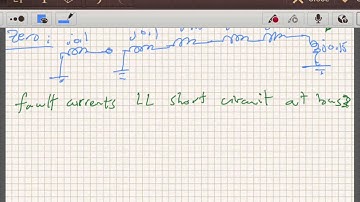 Zero:
j0.1 j0.1
j0.15
fault currents LL short circuit at bus3